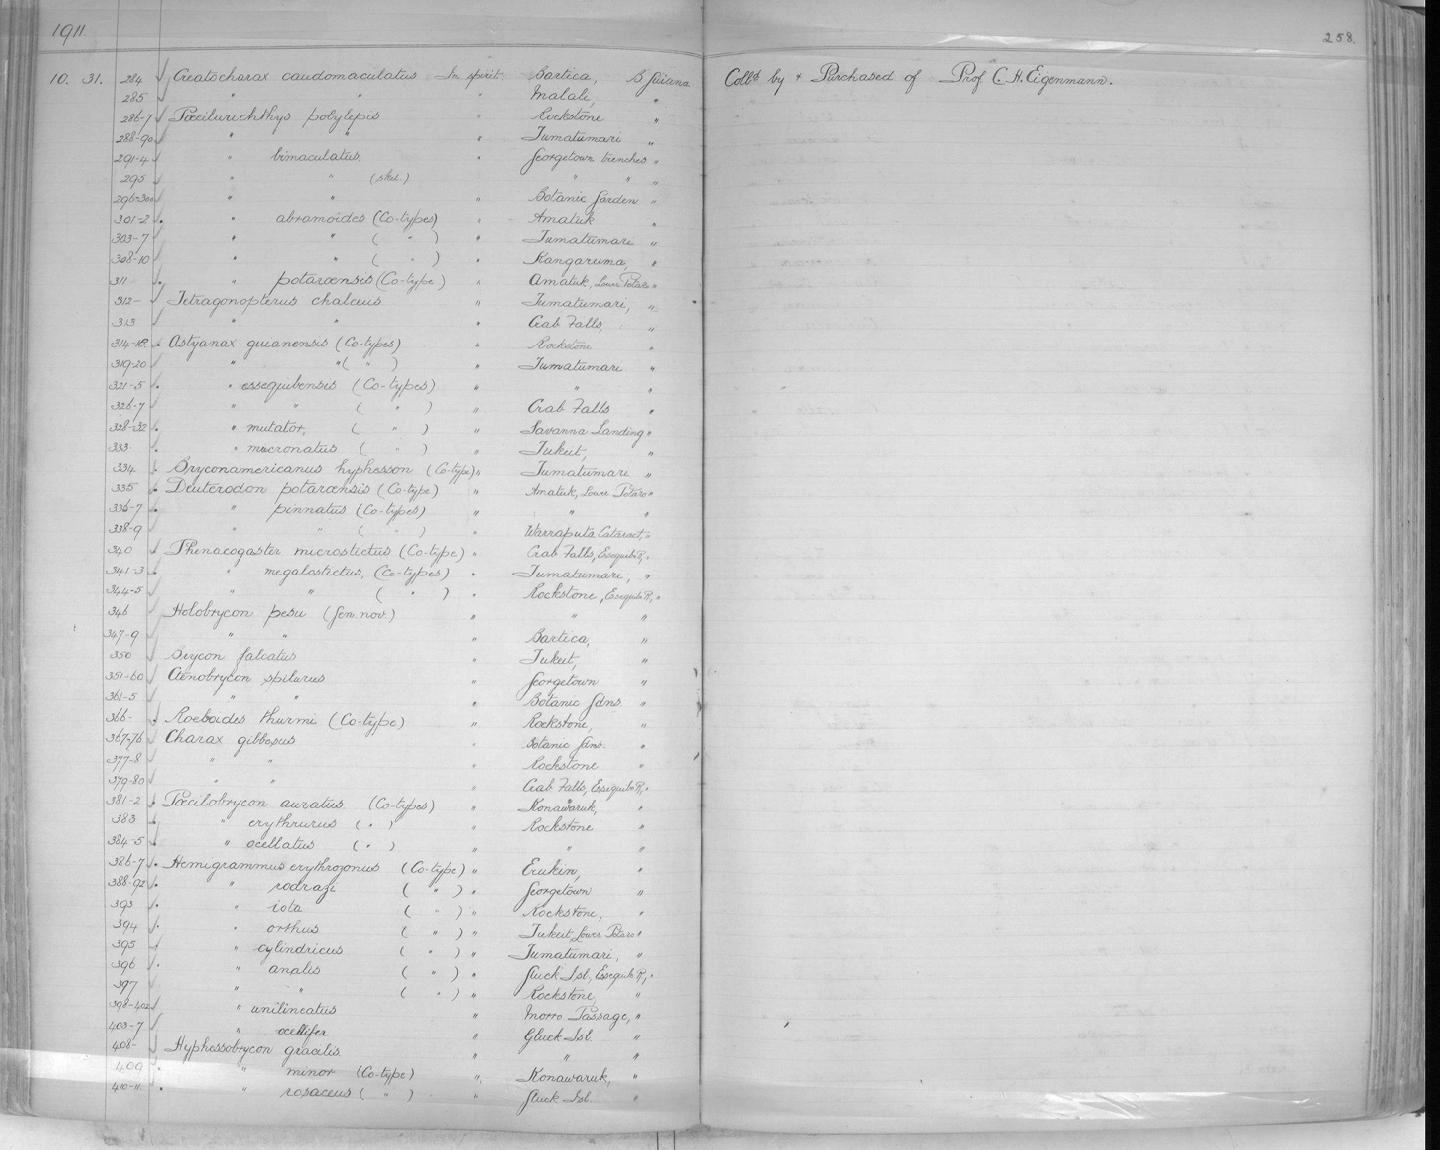 1911.
258.
10. 31. 284 Creatocharax caudomaculatus In spirit. Bartica, B. Guiana. Coll'd by & Purchased of Prof. C. H. Eigenmann.
285 " " " Malali, "
286-7 Pœcilurichthys polylepis " Rockstone "
288-90 " " " Tumatumari "
291-4 " bimaculatus " Georgetown trenches "
295 " " (skel.) " " "
296-300 " " " Botanic Garden "
301-2 " abramoides (Co-types) " Amatuk "
303-7 " " ( " ) " Tumatumari "
308-10 " " ( " ) " Kangaruma, "
311 " potaroensis (Co-type) " Amatuk, Lower Potaro "
312- Tetragonopterus chalceus " Tumatumari, "
313 " " " Crab Falls, "
314-18 Astyanax guianensis (Co-types) " Rockstone "
319-20 " " ( " ) " Tumatumari "
321-5 " essequibensis (Co-types) " " "
326-7 " " ( " ) " Crab Falls "
328-32 " mutator, ( " ) " Savanna Landing "
333 " mucronatus ( " ) " Tukeit, "
334 Bryconamericanus hyphesson (Co-type) " Tumatumari "
335 Deuterodon potaroensis (Co-type) " Amatuk, Lower Potaro "
336-7 " pinnatus (Co-types) " " "
338-9 " " ( " ) " Warraputa Cataract, "
340 Phenacogaster microstictus (Co-type) " Crab Falls, Essequib. R., "
341-3 " megalostictus, (Co-types) " Tumatumari, "
344-5 " " ( " ) " Rockstone, Essequib. R., "
346 Holobrycon pesu (Gen. nov.) " " "
347-9 " " " Bartica, "
350 Brycon falcatus " Tukeit, "
351-60 Ctenobrycon spilurus " Georgetown "
361-5 " " " Botanic Gdns. "
366- Roeboides thurni (Co-type) " Rockstone, "
367-76 Charax gibbosus " Botanic Gdns. "
377-8 " " " Rockstone "
379-80 " " " Crab Falls, Essequib. R., "
381-2 Pœcilobrycon auratus (Co-types) " Konawaruk, "
383 " erythrurus ( " ) " Rockstone "
384-5 " ocellatus ( " ) " " "
386-7 Hemigrammus erythrozonus (Co-type) " Erukin, "
388-92 " rodwayi ( " ) " Georgetown "
393 " iota ( " ) " Rockstone, "
394 " orthus ( " ) " Tukeit, Lower Potaro "
395 " cylindricus ( " ) " Tumatumari, "
396 " analis ( " ) " Gluck Isl., Essequib. R., "
397 " " ( " ) " Rockstone, "
398-402 " unilineatus " Morro Passage, "
403-7 " ocellifer " Gluck Isl. "
408- Hyphessobrycon gracilis " " "
409 " minor (Co-type) " Konawaruk, "
410-11 " rosaceus ( " ) " Gluck Isl. "